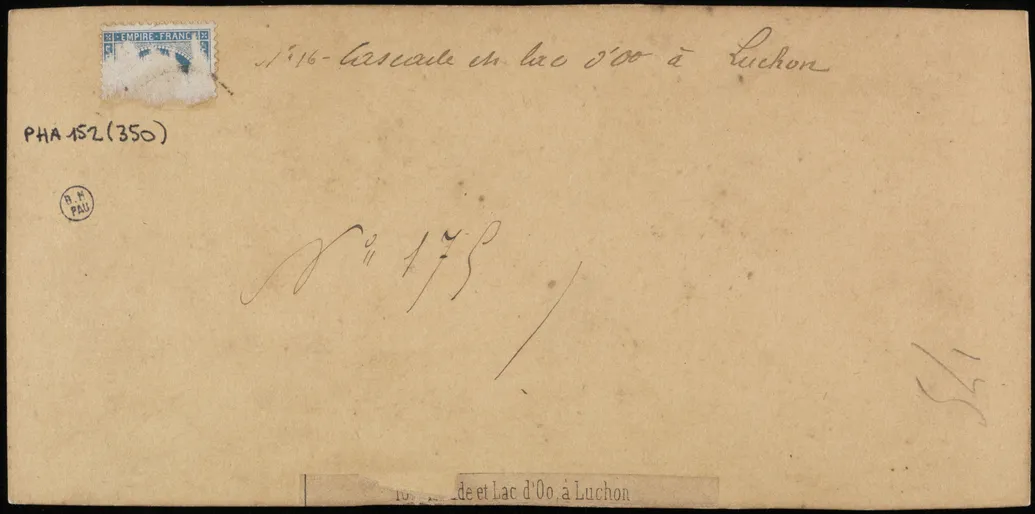 EMPIRE FRANC
N° 16 - Cascade et lac d'Oo à Luchon
PHA 152 (350)
B. M
PAU
N° 175
175
de et Lac d'Oo, à Luchon